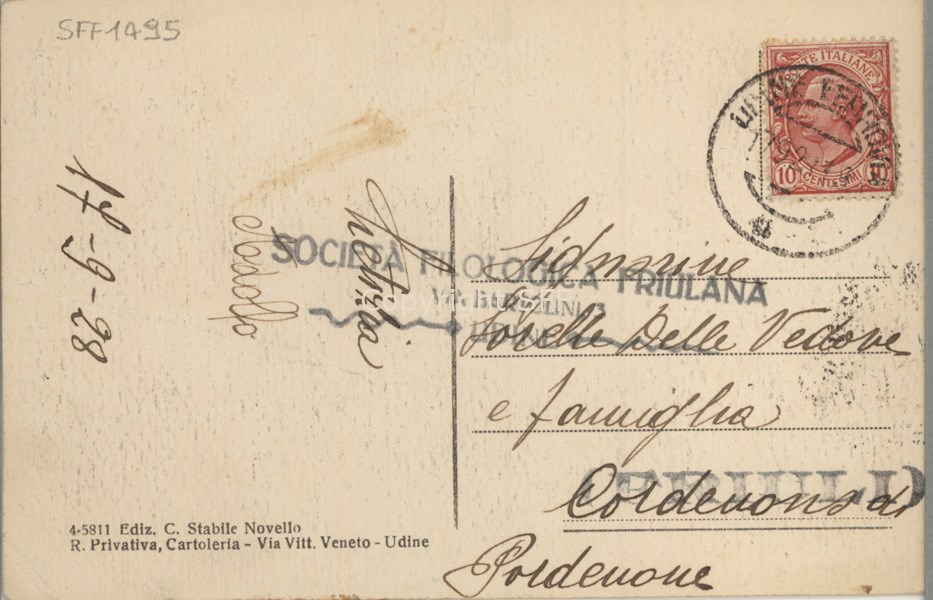 SFF1495
POSTE ITALIANE
10 CENTESIMI 10
UDINE FERROVIA
17-9-28
Rodolfo
SOCIETÀ FILOLOGICA FRIULANA
VIA
UDINE
Signorine
Sorelle Delle Vedove
e famiglia
Cordenons di
Pordenone
4-5811 Ediz. C. Stabile Novello
R. Privativa, Cartoleria - Via Vitt. Veneto - Udine